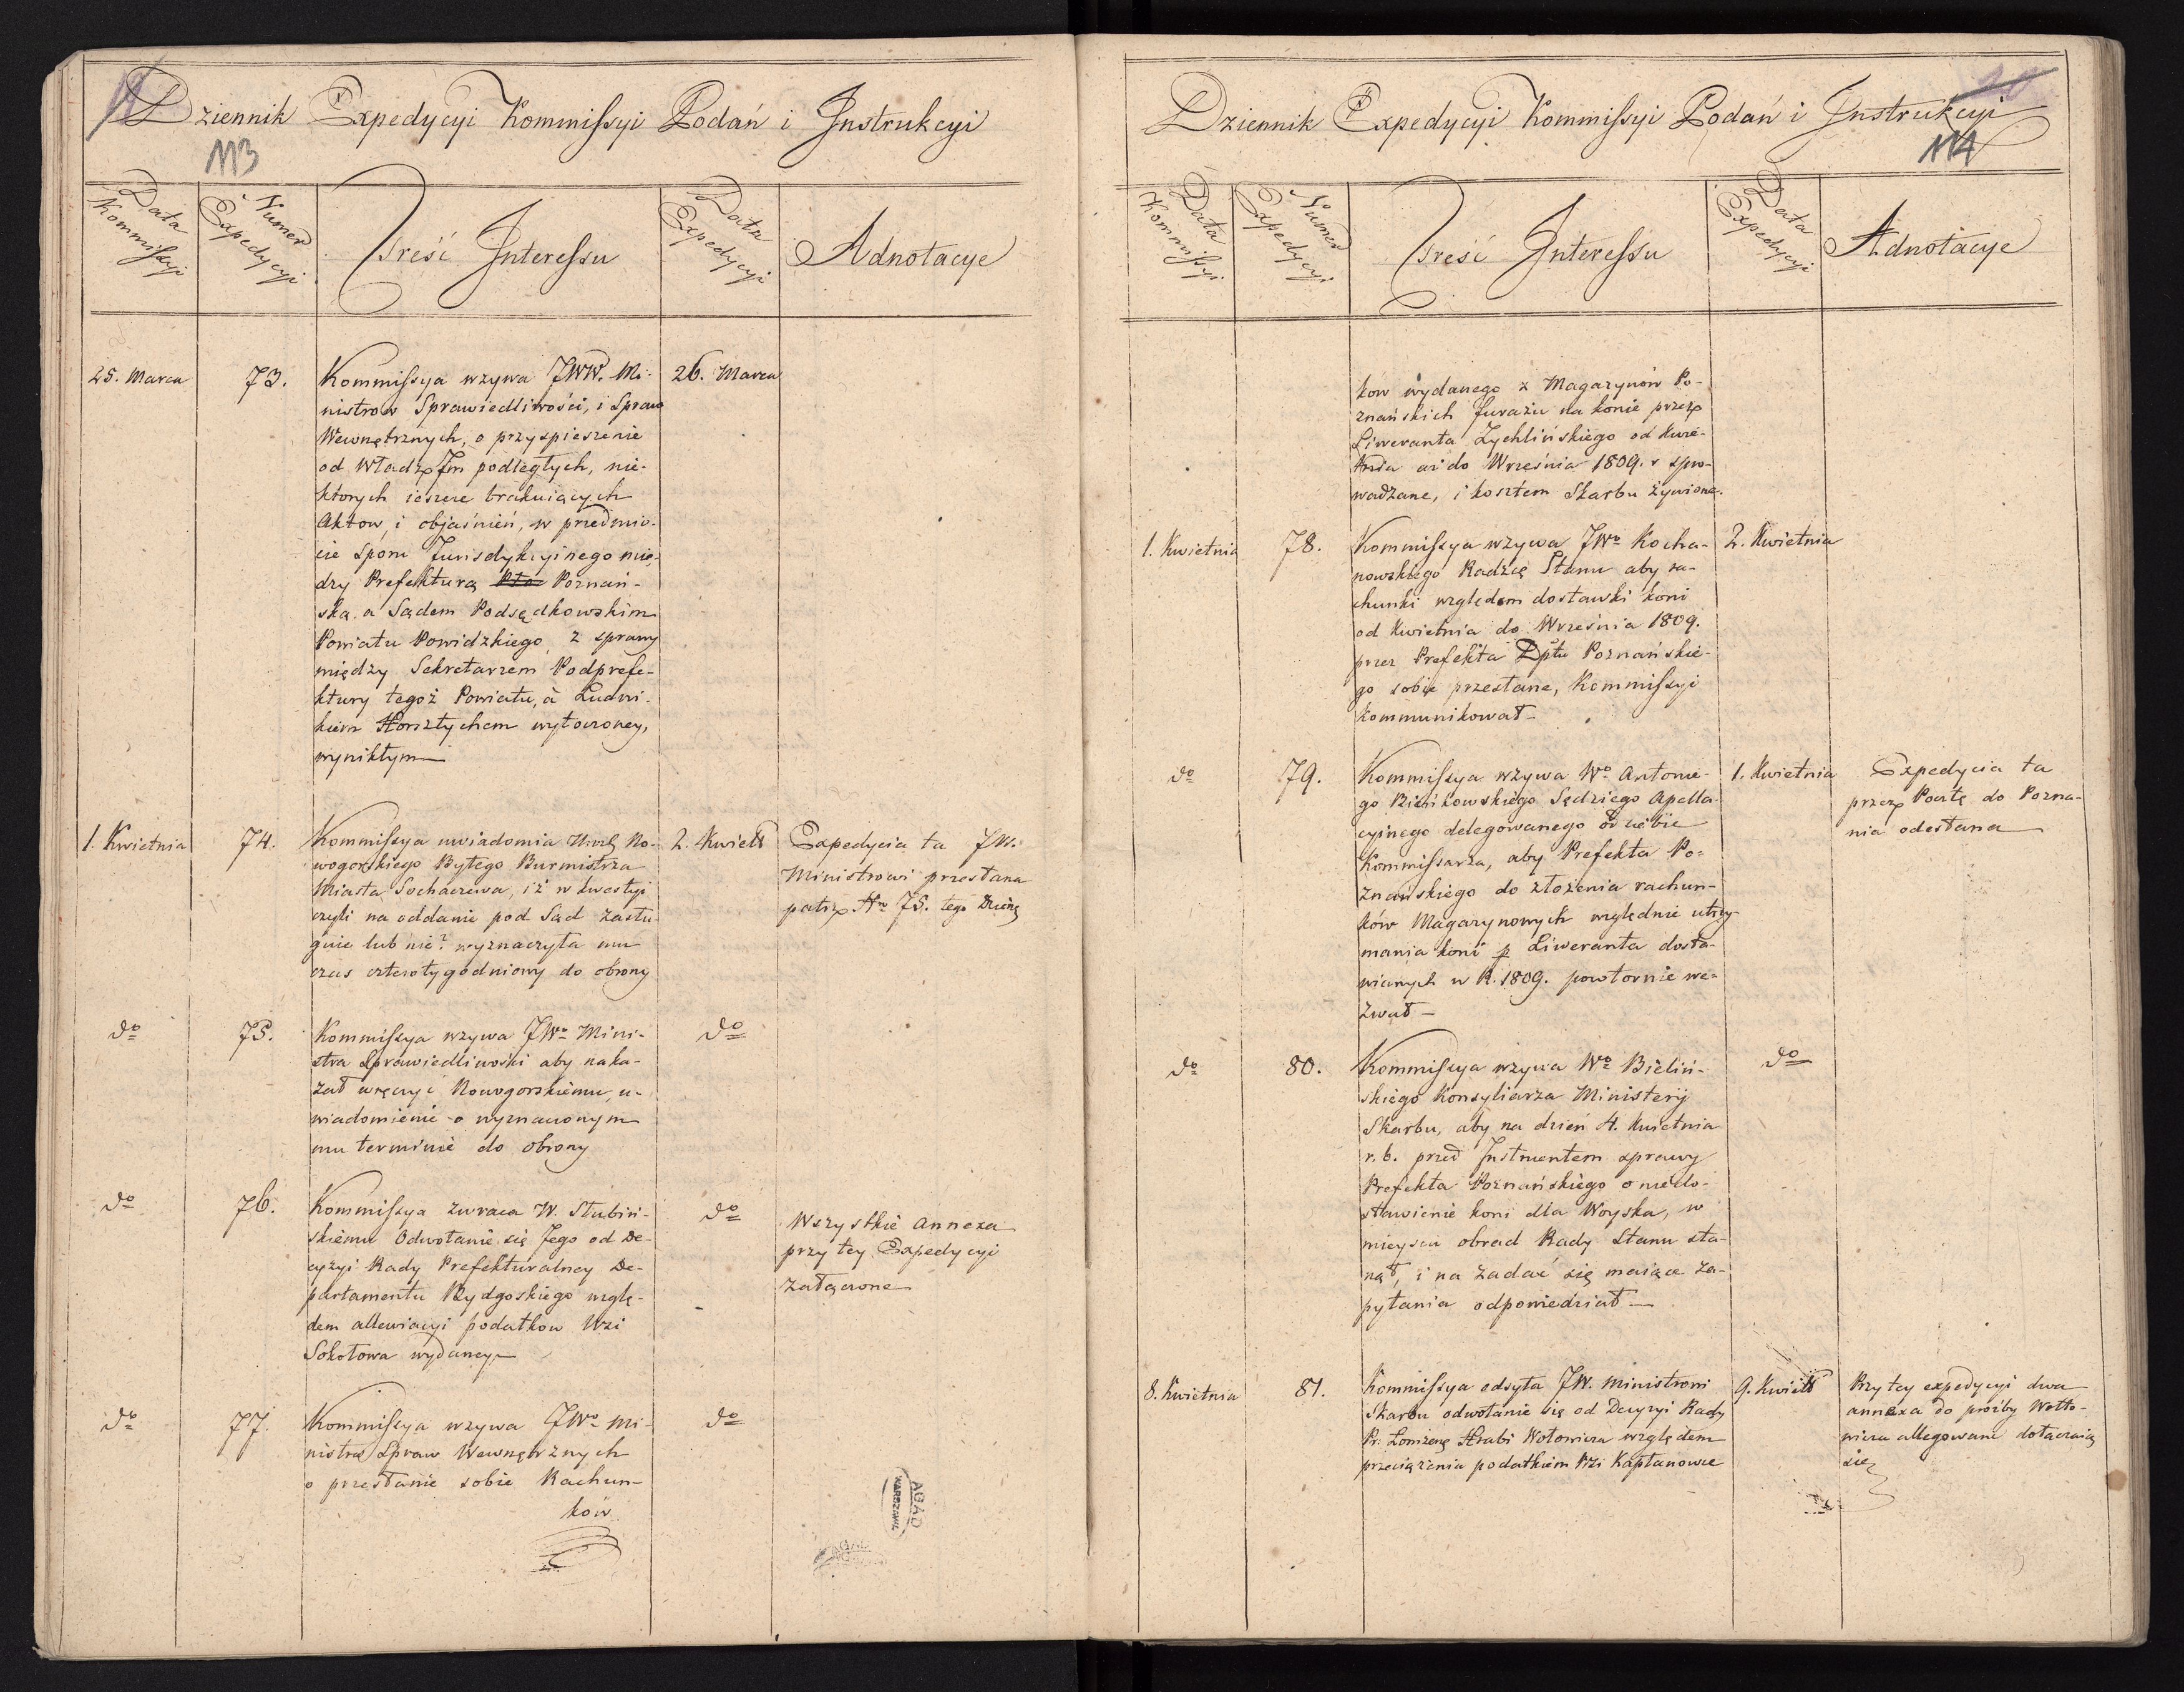 Dziennik Expedycyi Kommissyi Podań i Instrukcyi
113
Data Kommissyi
Numer Expedycyi
Treść Interessu
Data Expedycyi
Adnotacye
25. Marca
73.
Kommissya wzywa JWW. Mi-
nistrow Sprawiedliwości, i Spraw
Wewnętrznych, o przyspieszenie
od Władz Im podległych, nie-
ktorych ieszcze brakuiących
Aktow, i objaśnień, w przedmio-
cie Sporu Jurisdykcyinego mię-
dzy Prefekturą Poznań-
ską, a Sądem Podsędkowskim
Powiatu Powidzkiego, z sprawy
między Sekretarzem Podprefe-
ktury tegoż Powiatu, à Ludwi-
kiem Horsztychem wytoczoney,
wynikłym
26. Marca
1. Kwietnia
74.
Kommissya uwiadomia No-
wogorskiego Byłego Burmistrza
Miasta Sochaczewa, iż w kwestyi
czyli na oddanie pod Sąd zasłu-
guie lub nie? wyznaczyła mu
czas czterotygodniowy do obrony
2. Kwiet
Expedycia ta JW.
Ministrowi przesłana
patrz Nro 75. tego
do
75.
Kommissya wzywa JWo Mini-
stra Sprawiedliwości aby naka-
zał wręczyć Nowogorskiemu, u-
wiadomienie o wyznaczonym
mu terminie do obrony
do
do
76.
Kommissya zwraca W. Słubiń-
skiemu Odwołanie się Jego od De-
cyzyi Rady Prefekturalney De-
partamentu Bydgoskiego wzglę-
dem allewiacyi podatkow Wsi
Sokołowa wydaney
do
Wszystkie annexa
przy tey Expedycyi
załączone
do
77.
Kommissya wzywa JWo Mi-
nistra Spraw Wewnętrznych
o przesłanie sobie Rachun-
kow
do
AGAD
WARSZAWA
Dziennik Expedycyi Kommissyi Podań i Instrukcyi
114
Data Kommissyi
Numer Expedycyi
Treść Interessu
Data Expedycyi
Adnotacye
ków wydanego z Magazynów Po-
znańskich furażu na konie przez
Liweranta Zychlińskiego od Kwie-
tnia aż do Września 1809. r spro-
wadzane, i kosztem Skarbu żywione.
1. Kwietnia
78.
Kommissya wzywa JWo Kocha-
nowskiego Radzcę Stanu aby ra-
chunki względem dostawki koni
od Kwietnia do Września 1809.
przez Prefekta Dptu Poznańskie-
go sobie przesłane, Kommissyi
kommunikował
2. Kwietnia
do
79.
Kommissya wzywa Wo Antonie-
go Bieńkowskiego Sędziego Apella-
cyinego delegowanego od siebie
Kommissarza, aby Prefekta Po-
znańskiego do złożenia rachun-
ków Magazynowych względnie utrzy-
mania koni p Liweranta dosta-
wianych w R. 1809. powtornie we-
zwał
1. Kwietnia
Expedycia ta
przez Pocztę do Pozna-
nia odesłana
do
80.
Kommissya wzywa Wo Bieliń-
skiego Konsyliarza Ministerij
Skarbu, aby na dzień 4. Kwietnia
r. b. przed Instruentem sprawy
Prefekta Poznańskiego o niedo-
stawienie koni dla Woyska, w
mieyscu obrad Rady Stanu sta-
nął, i na zadać się maiące za-
pytania odpowiedział
do
8. Kwietnia
81.
Kommissya odsyła JW. Ministrowi
Skarbu odwołanie się od Decyzyi Rady
Pr: Łomżenę Hrabi Wołowicza względem
przeciążenia podatkiem Wsi Kapłanowce
9. Kwiet
Przy tey expedycyi dwa
annexa do proźby Wołło-
wicza allegowane dołączaią
się